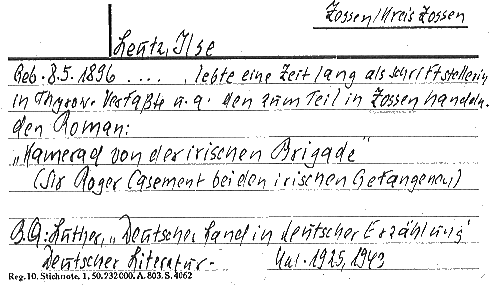 Zossen/Kreis Zossen
Leutz, Ilse
Geb. 8.5.1896 ...., lebte eine Zeit lang als Schriftstellerin
in Thyrow. Verfaßte u.a. den zum Teil in Zossen handeln-
den Roman:
„Kamerad von der irischen Brigade"
(Sir Roger Casement bei den irischen Gefangenen)
B.Q: Luther, „Deutsches Land in deutscher Erzählung"
Deutscher Literatur- 1925, 1943
Reg.10. Stichnote. 1, 50.232000. A. 803. S. 4062